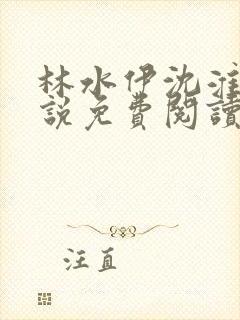 林水伊沈淮
說免費閱讀
汪直